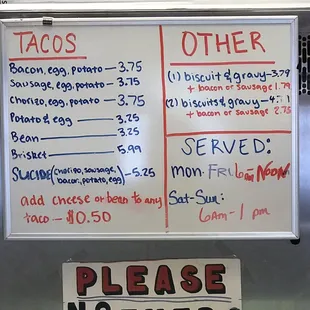 TACOS
Bacon, egg, potato — 3.75
Sausage, egg, potato — 3.75
Chorizo, egg, potato — 3.75
Potato & egg — 3.25
Bean — 3.25
Brisket — 5.99
SUICIDE (chorizo, sausage, bacon, potato, egg) — 5.25
add cheese or bean to any
taco — $0.50
OTHER
(1) biscuit & gravy — 3.79
+ bacon or sausage 1.79
(2) biscuits & gravy —
+ bacon or sausage 2.75
SERVED:
Mon-Fri 6am NOON
Sat-Sun:
6am-1pm
PLEASE